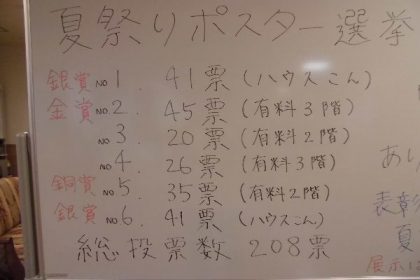 夏祭りポスター選挙
銀賞 NO 1. 41票 (ハウスこん)
金賞 NO 2. 45票 (有料3階)
NO 3 20票 (有料2階)
NO 4 26票 (有料3階)
銅賞 NO 5. 35票 (有料2階)
銀賞 NO 6. 41票 (ハウスこん)
総投票数 208票
あり
表彰
夏
展示